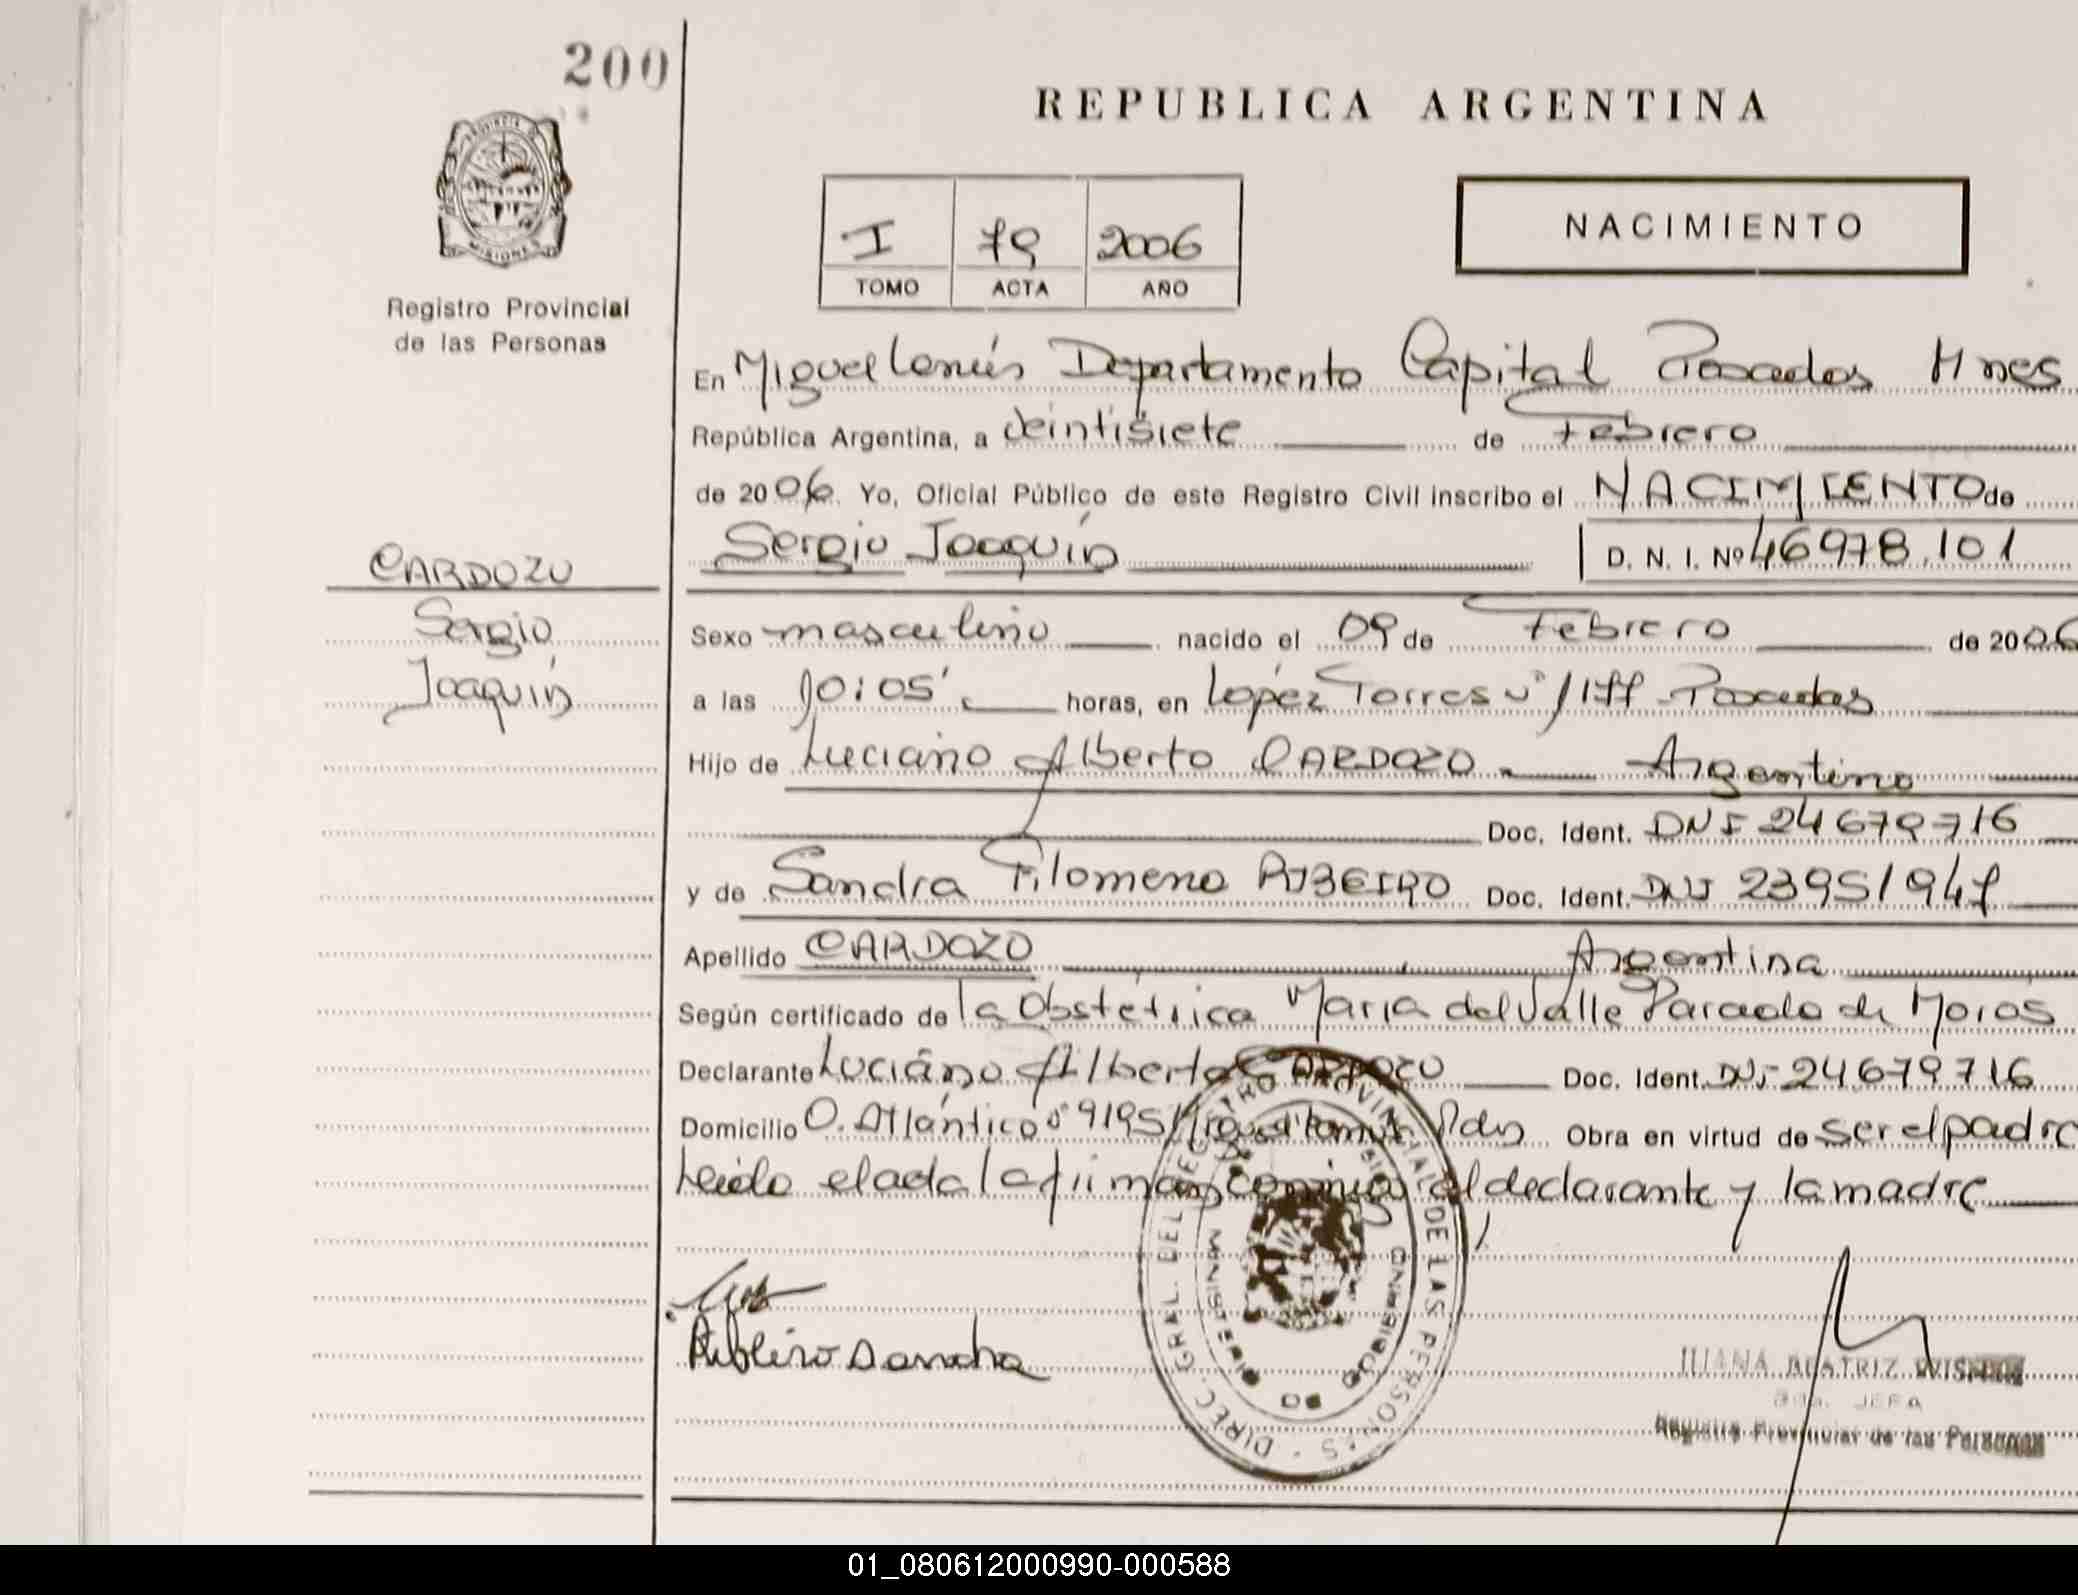 200
REPUBLICA ARGENTINA
PROVINCIA DE
MISIONES
Registro Provincial
de las Personas
I 79 2006
TOMO ACTA AÑO
NACIMIENTO
En Miguel Lanús Departamento Capital Posadas Mnes
República Argentina, a veintisiete de Febrero
de 2006 Yo, Oficial Público de este Registro Civil inscribo el NACIMIENTO de
Sergio Joaquín D. N. I. Nº 46978.101
CARDOZO
Sergio
Joaquín
Sexo masculino nacido el 09 de Febrero de 2006
a las 10:05' horas, en López Torres nº 1177 - Posadas
Hijo de Luciano Alberto CARDOZO Argentino
Doc. Ident. DNI 24679716
y de Sandra Filomena RIBEIRO Doc. Ident. DNI 23951947
Apellido CARDOZO Argentina
Según certificado de la Obstétrica María del Valle Parada de Moros
Declarante Luciano Alberto CARDOZO Doc. Ident. DNI 24679716
Domicilio O. Atlántico nº 9195 Miguel Lanús Pdas Obra en virtud de ser el padre
Leída el acta la firman conmigo el declarante y la madre
Ribeiro Sandra
DIREC. GRAL. DEL REGISTRO PROVINCIAL DE LAS PERSONAS
MINISTERIO DE GOBIERNO
BEATRIZ
JEFA
Registro Provincial de las Personas
01_080612000990-000588